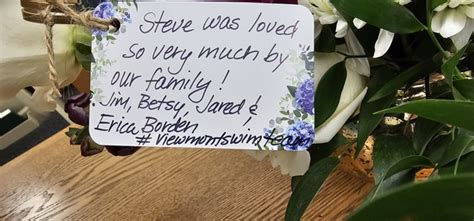 Steve was loved
so very much by
our family!
Jim, Betsy, Jared &
Erica Borden
#viewmontswimteam